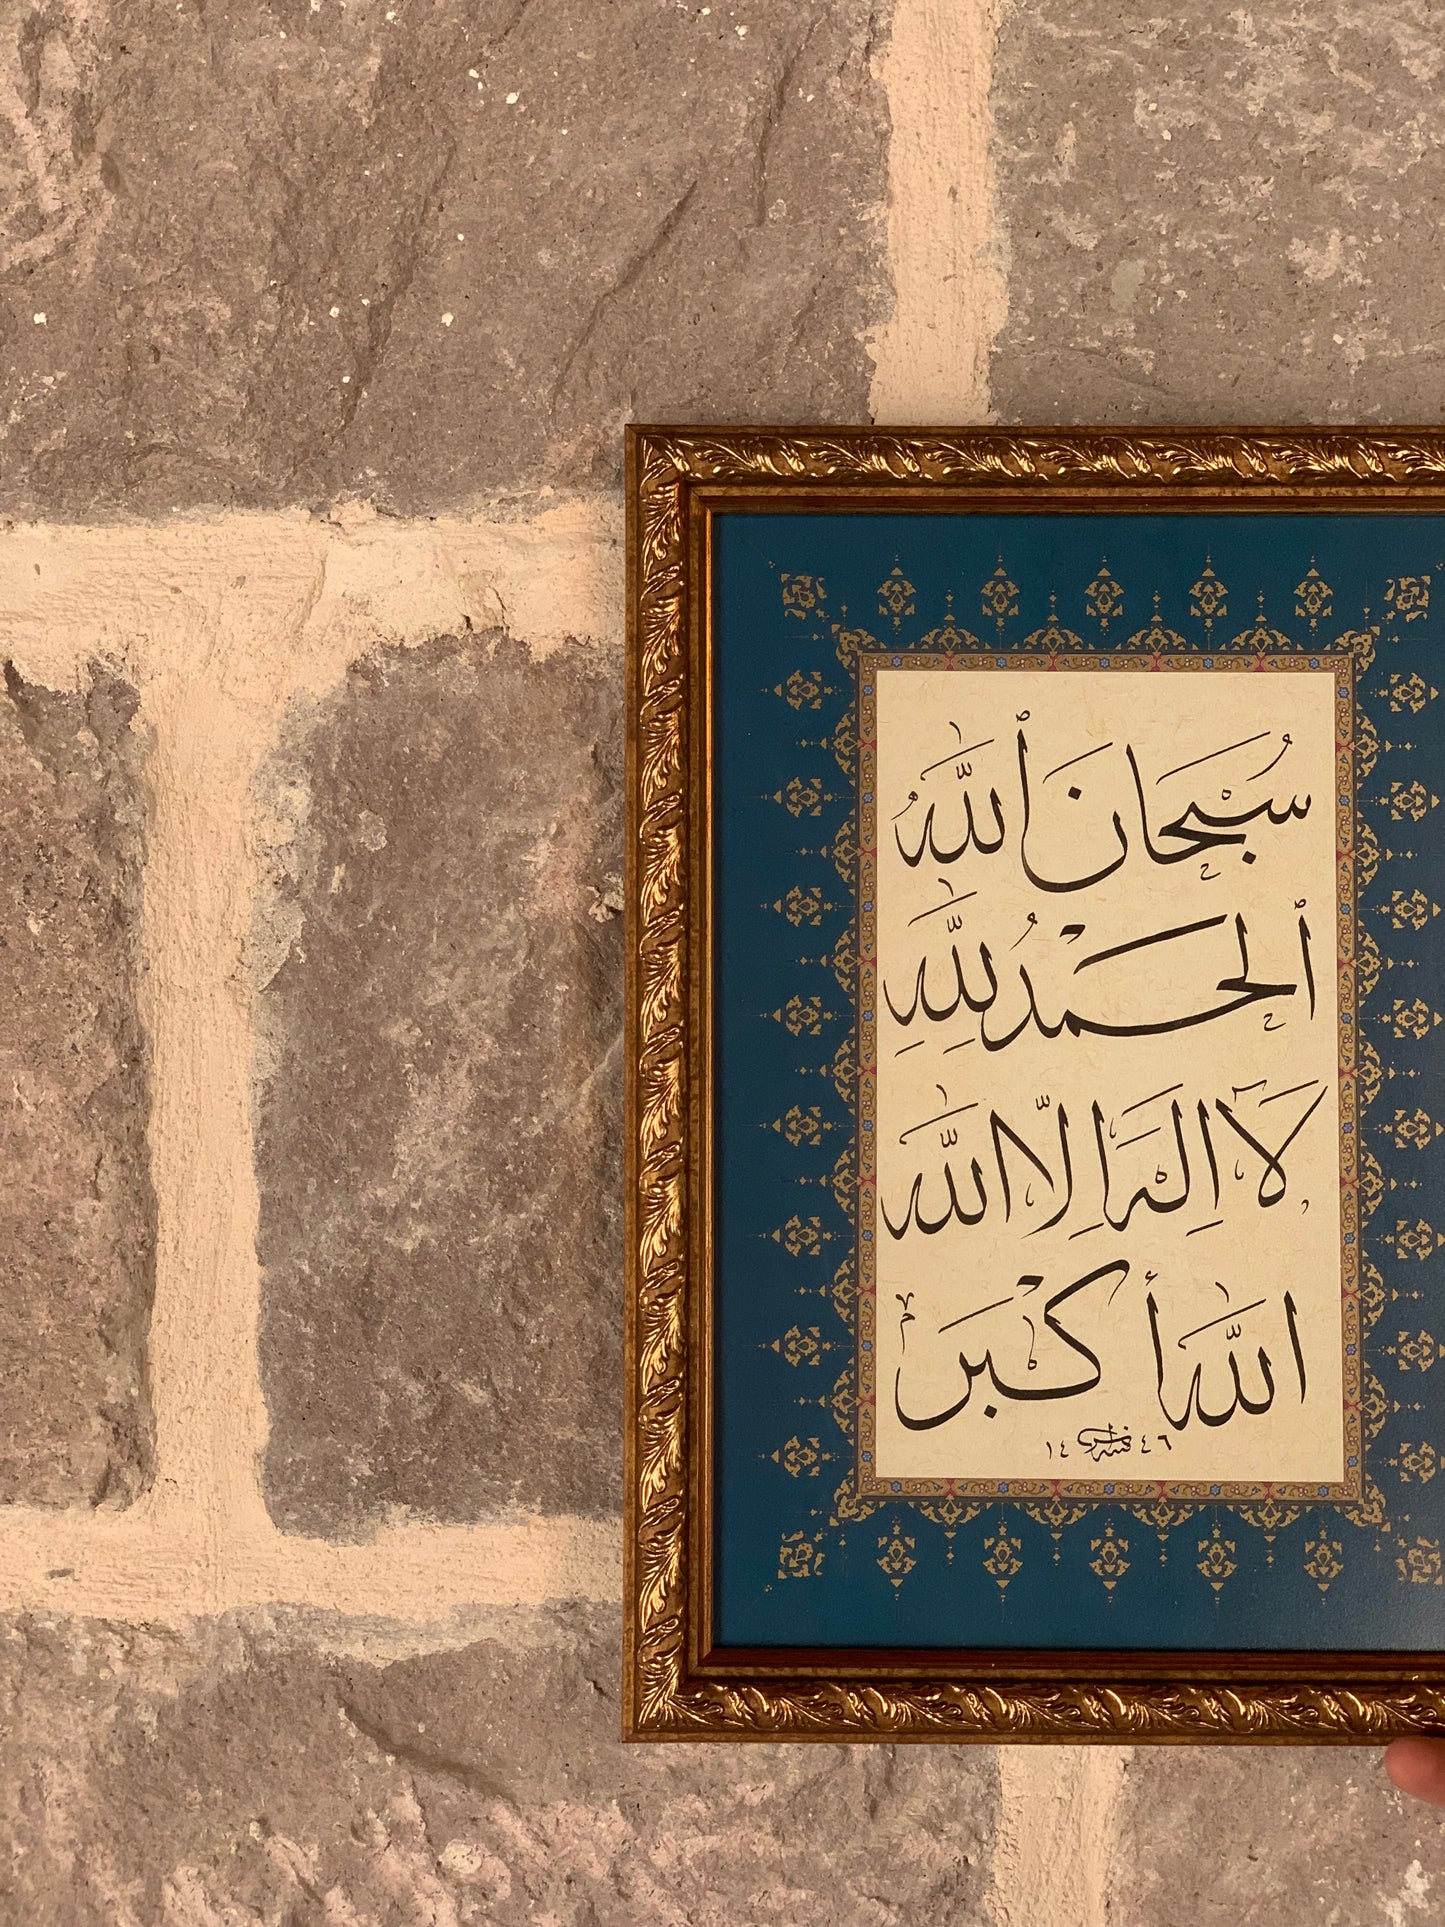 سُبْحَانَ ٱللّٰهُ
ٱلْحَمْدُ لِلّٰهِ
لَا اِلٰهَ اِلَّا اللّٰه
اللّٰه أَكْبَرْ
١٤٤٦